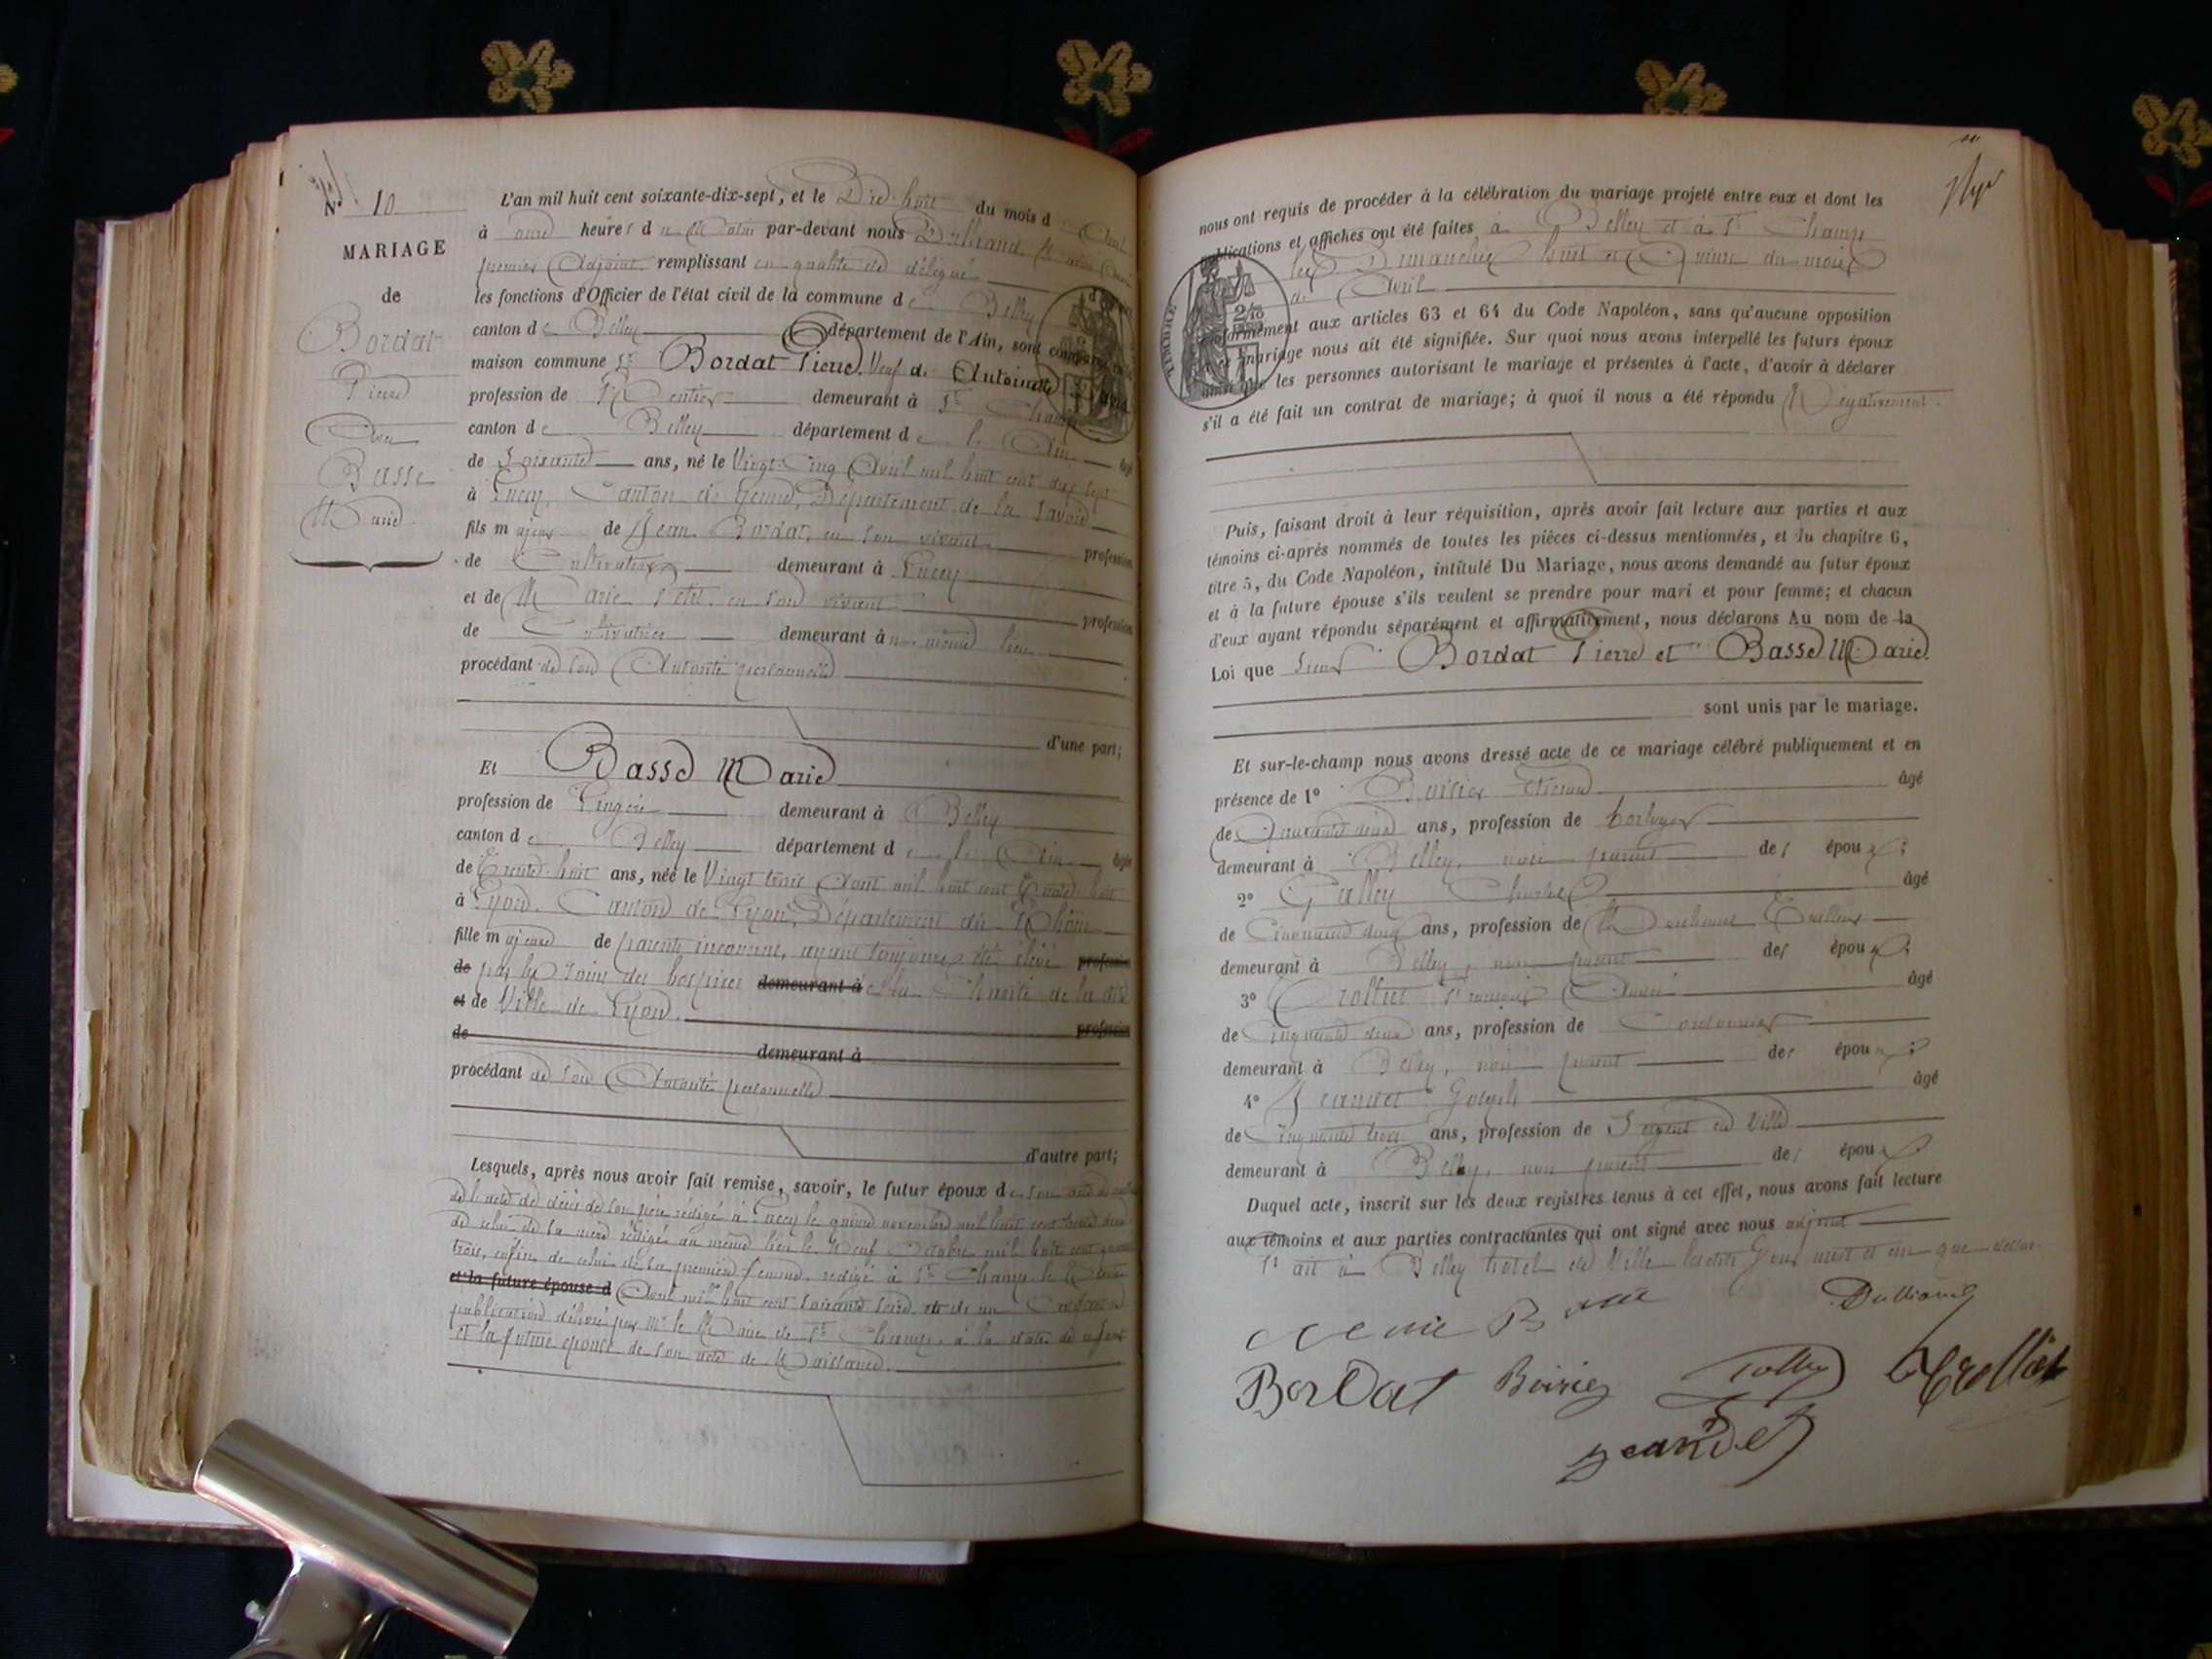 N° 10
MARIAGE
de
Bordat
Pierre
Avec
Basse
Marie
L'an mil huit cent soixante-dix-sept, et le Dix-huit du mois d
à onze heures du Matin par-devant nous
premier Adjoint remplissant en qualité de délégué
les fonctions d'Officier de l'état civil de la commune de Belley
canton de Belley département de l'Ain, sont comparus
maison commune Sr Bordat Pierre, Veuf de Antoinette
profession de Rentier demeurant à St Champ
canton de Belley département de l'Ain âgé
de Soixante ans, né le Vingt-Cinq Avril mil huit cent dix sept
à Lucey, Canton de Yenne, Département de la Savoie
fils majeur de Jean Bordat, en son vivant profession
de Cultivateur demeurant à Lucey
et de Marie Petit, en son vivant profession
de Cultivatrice demeurant à même lieu
procédant de son Autorité personnelle
d'une part;
Et Basse Marie
profession de Lingère demeurant à Belley
canton de Belley département de l'Ain âgée
de Trente-huit ans, née le Vingt trois Août mil huit cent Trente huit
à Lyon, Canton de Lyon, Département du Rhône
fille majeure de parents inconnus, ayant toujours été élevé profession
de par les soins des hospices demeurant à de la Charité de la dite
et de Ville de Lyon.
de profession
demeurant à
procédant de son Autorité personnelle
d'autre part;
Lesquels, après nous avoir fait remise, savoir, le futur époux de son acte de
de l'acte de décès de son père rédigé à Lucey le quinze novembre mil huit cent trente deux
de celui de sa mère rédigé au même lieu le Neuf Octobre mil huit cent
trois, enfin de celui de sa première femme, rédigé à St Champ le
et la future épouse d Août mil huit cent soixante seize et de un Certificat de
publication délivré par Mr le Maire de St Champ, à la date de
et la future épouse de son acte de Naissance.
nous ont requis de procéder à la célébration du mariage projeté entre eux et dont les
publications et affiches ont été faites à Belley et à St Champ
les Dimanches huit et Quinze du mois
d' Avril
TIMBRE
conformément aux articles 63 et 64 du Code Napoléon, sans qu'aucune opposition
à ce mariage nous ait été signifiée. Sur quoi nous avons interpellé les futurs époux
ainsi que les personnes autorisant le mariage et présentes à l'acte, d'avoir à déclarer
s'il a été fait un contrat de mariage; à quoi il nous a été répondu Négativement.
Puis, faisant droit à leur réquisition, après avoir fait lecture aux parties et aux
témoins ci-après nommés de toutes les pièces ci-dessus mentionnées, et du chapitre 6,
titre 5, du Code Napoléon, intitulé Du Mariage, nous avons demandé au futur époux
et à la future épouse s'ils veulent se prendre pour mari et pour femme; et chacun
d'eux ayant répondu séparément et affirmativement, nous déclarons Au nom de la
Loi que Sieur Bordat Pierre et Basse Marie.
sont unis par le mariage.
Et sur-le-champ nous avons dressé acte de ce mariage célébré publiquement et en
présence de 1° âgé
de Quarante deux ans, profession de horloger
demeurant à Belley, non parent des époux;
2° âgé
de Cinquante deux ans, profession de Marchand Tailleur
demeurant à Belley, non parent des époux;
3° Trolliet François André âgé
de Cinquante deux ans, profession de Cordonnier
demeurant à Belley, non parent des époux;
4° Jeandet Joseph âgé
de Cinquante trois ans, profession de Sergent de Ville
demeurant à Belley, non parent des époux
Duquel acte, inscrit sur les deux registres tenus à cet effet, nous avons fait lecture
aux témoins et aux parties contractantes qui ont signé avec nous adjoint
Fait à Belley hôtel de Ville lesdits Jour mois et an que dessus.
Bordat
Trolliet
Jeandet